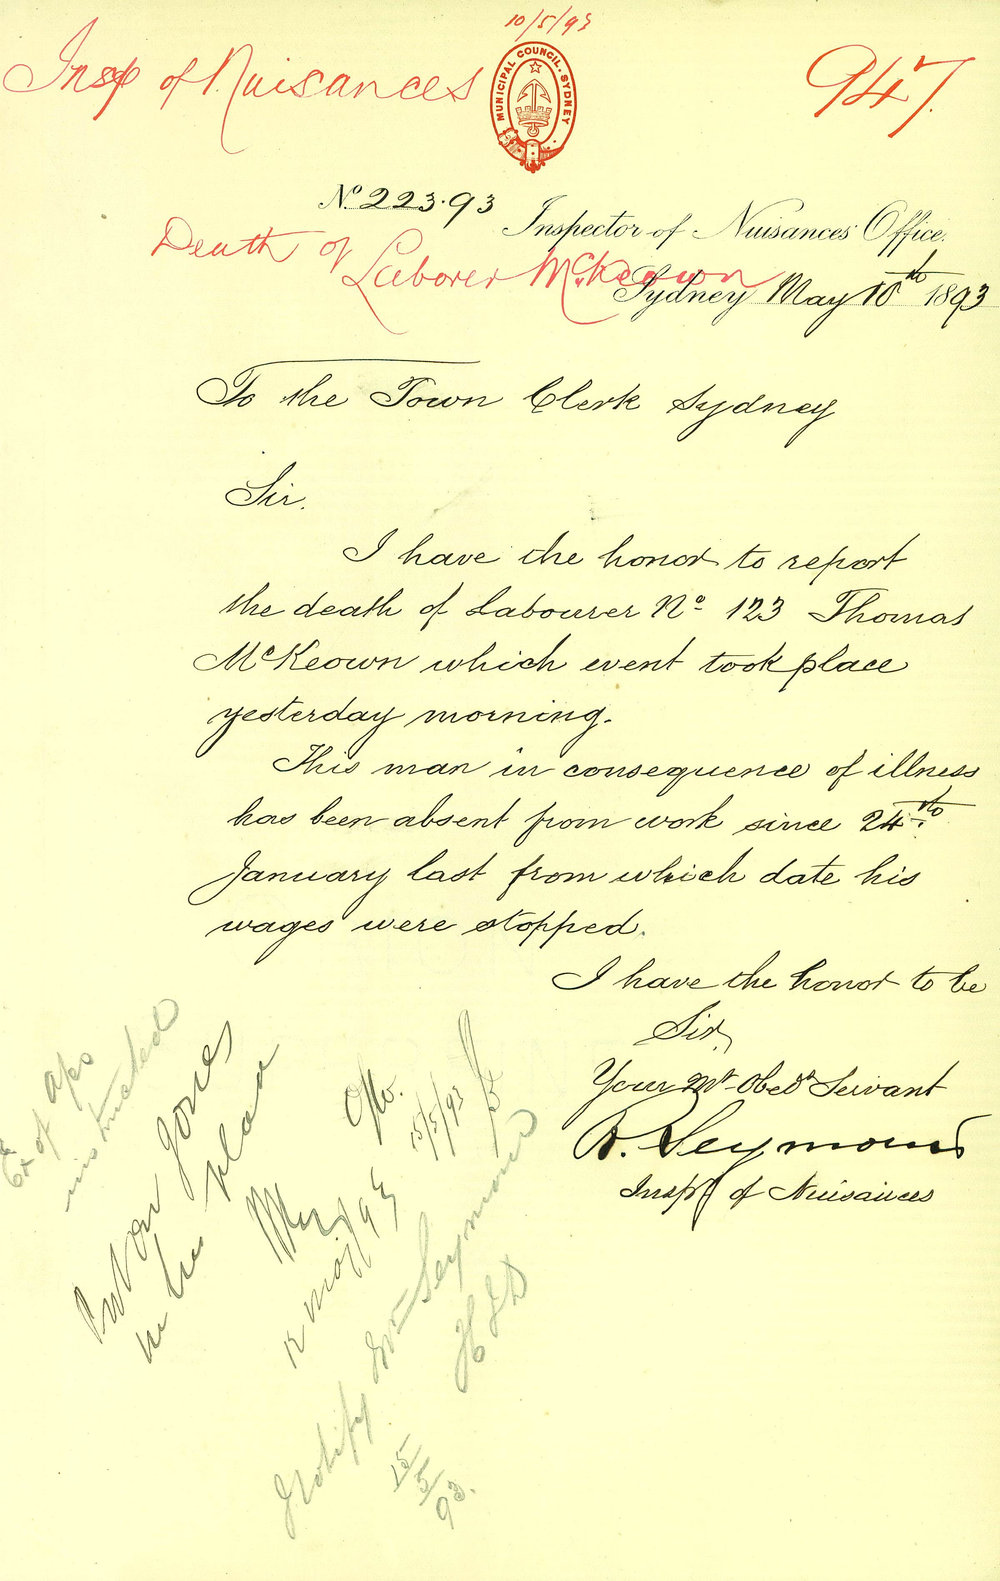 10/5/93
Insp of Nuisances
947.
MUNICIPAL COUNCIL. SYDNEY
No. 223.93
Inspector of Nuisances Office.
Death of
Laborer McKeown
Sydney May 10th 1893
To the Town Clerk Sydney
Sir.
I have the honor to report
the death of Labourer No 123 Thomas
McKeown which event took place
yesterday morning.
This man in consequence of illness
has been absent from work since 24th
January last from which date his
wages were stopped.
I have the honor to be
Sir,
Your Mt Obedt Servant
R. Seymour
Inspr of Nuisances
Ex of a/cs
instructed
Put on Jones
in his place
12 May 93
15/5/93
Notify Mr Seymour
15/5/93.